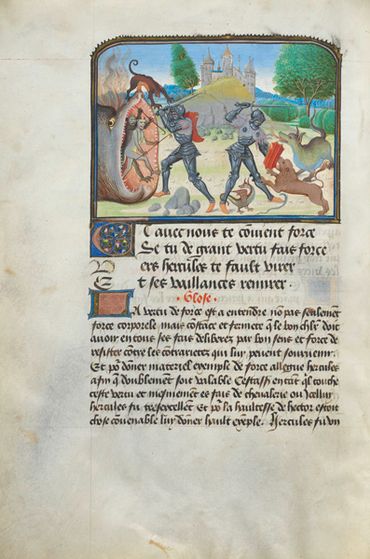 Et auec nous te couient force
Se tu de grant vertu fais force
Vers hercules te fault virer
Et ses vaillances remirer
Glose
La vertu de force est a entendre no pas seulement
force corporele mais costace et fermete q̃ le bon chlr doit
auoir en tous ses fais deliberez par bon sens et force de
resister cõtre les cõtrarietez qui luy peuent souruenir
Et por dõner materiel exemple de force allegue hercules
afin q̃ doublement soit valable Cestass en tãt q̃l touche
ceste vertu et mesmement es fais de chevalerie ou Jcellui
hercules fu tresexcellent Et por la haultesse de hector estoit
chose couenable luy dõner hault exẽple. Hercules fu vn